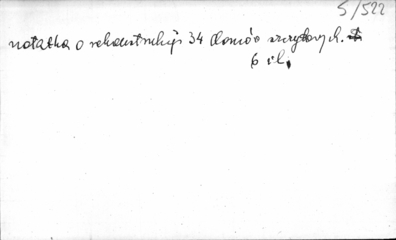 S/522
notatka o rekonstrukcji 34 domów szczytowych.
6 il.